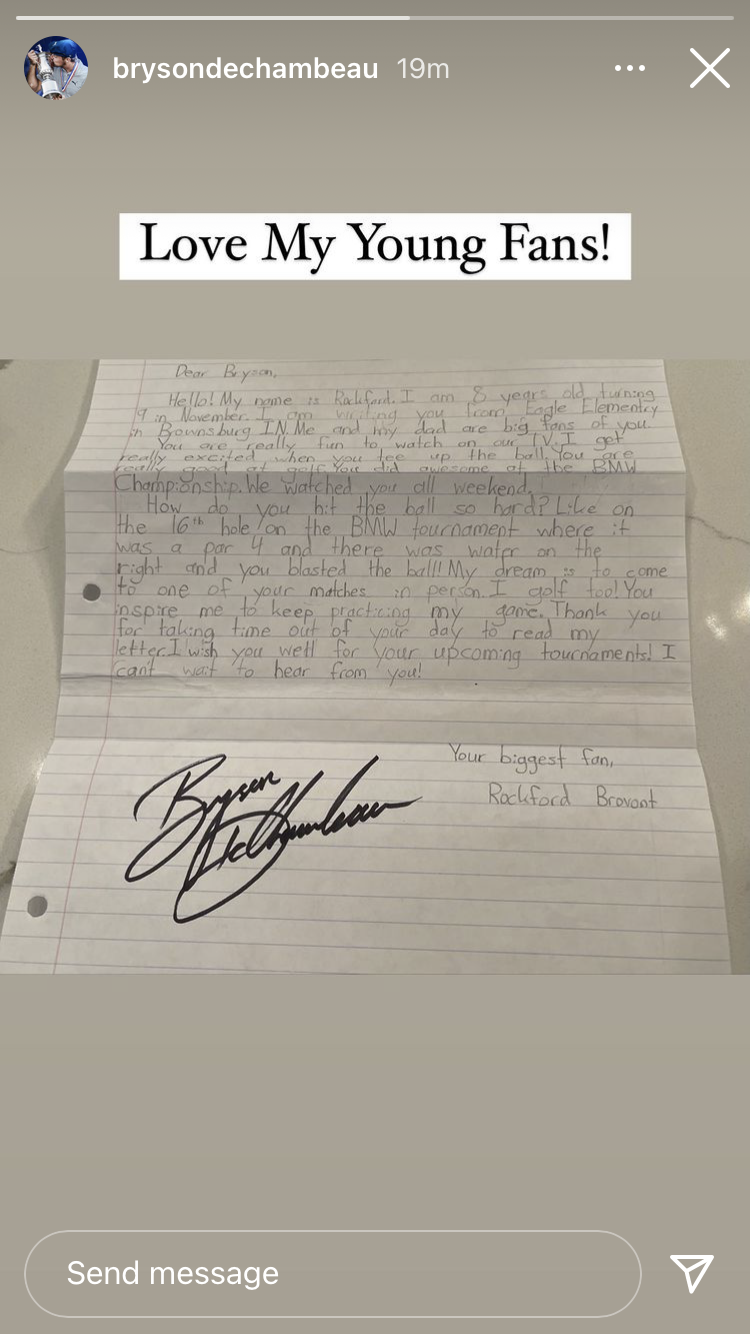 brysondechambeau 19m
Love My Young Fans!
Dear Bryson,
Hello! My name is Rockford. I am 8 years old turning
9 in November. I am writing you from Eagle Elementry
in Brownsburg IN. Me and my dad are big fans of you.
You are really fun to watch on our TV. I get
really excited when you tee up the ball. You are
really good at golf. You did awesome at the BMW
Championship. We watched you all weekend.
How do you hit the ball so hard? Like on
the 16th hole on the BMW tournament where it
was a par 4 and there was water on the
right and you blasted the ball! My dream is to come
to one of your matches in person. I golf too! You
inspire me to keep practicing my game. Thank you
for taking time out of your day to read my
letter. I wish you well for your upcoming tournaments! I
can't wait to hear from you!
Your biggest fan,
Rockford Brovont
Bryson
DeChambeau
Send message